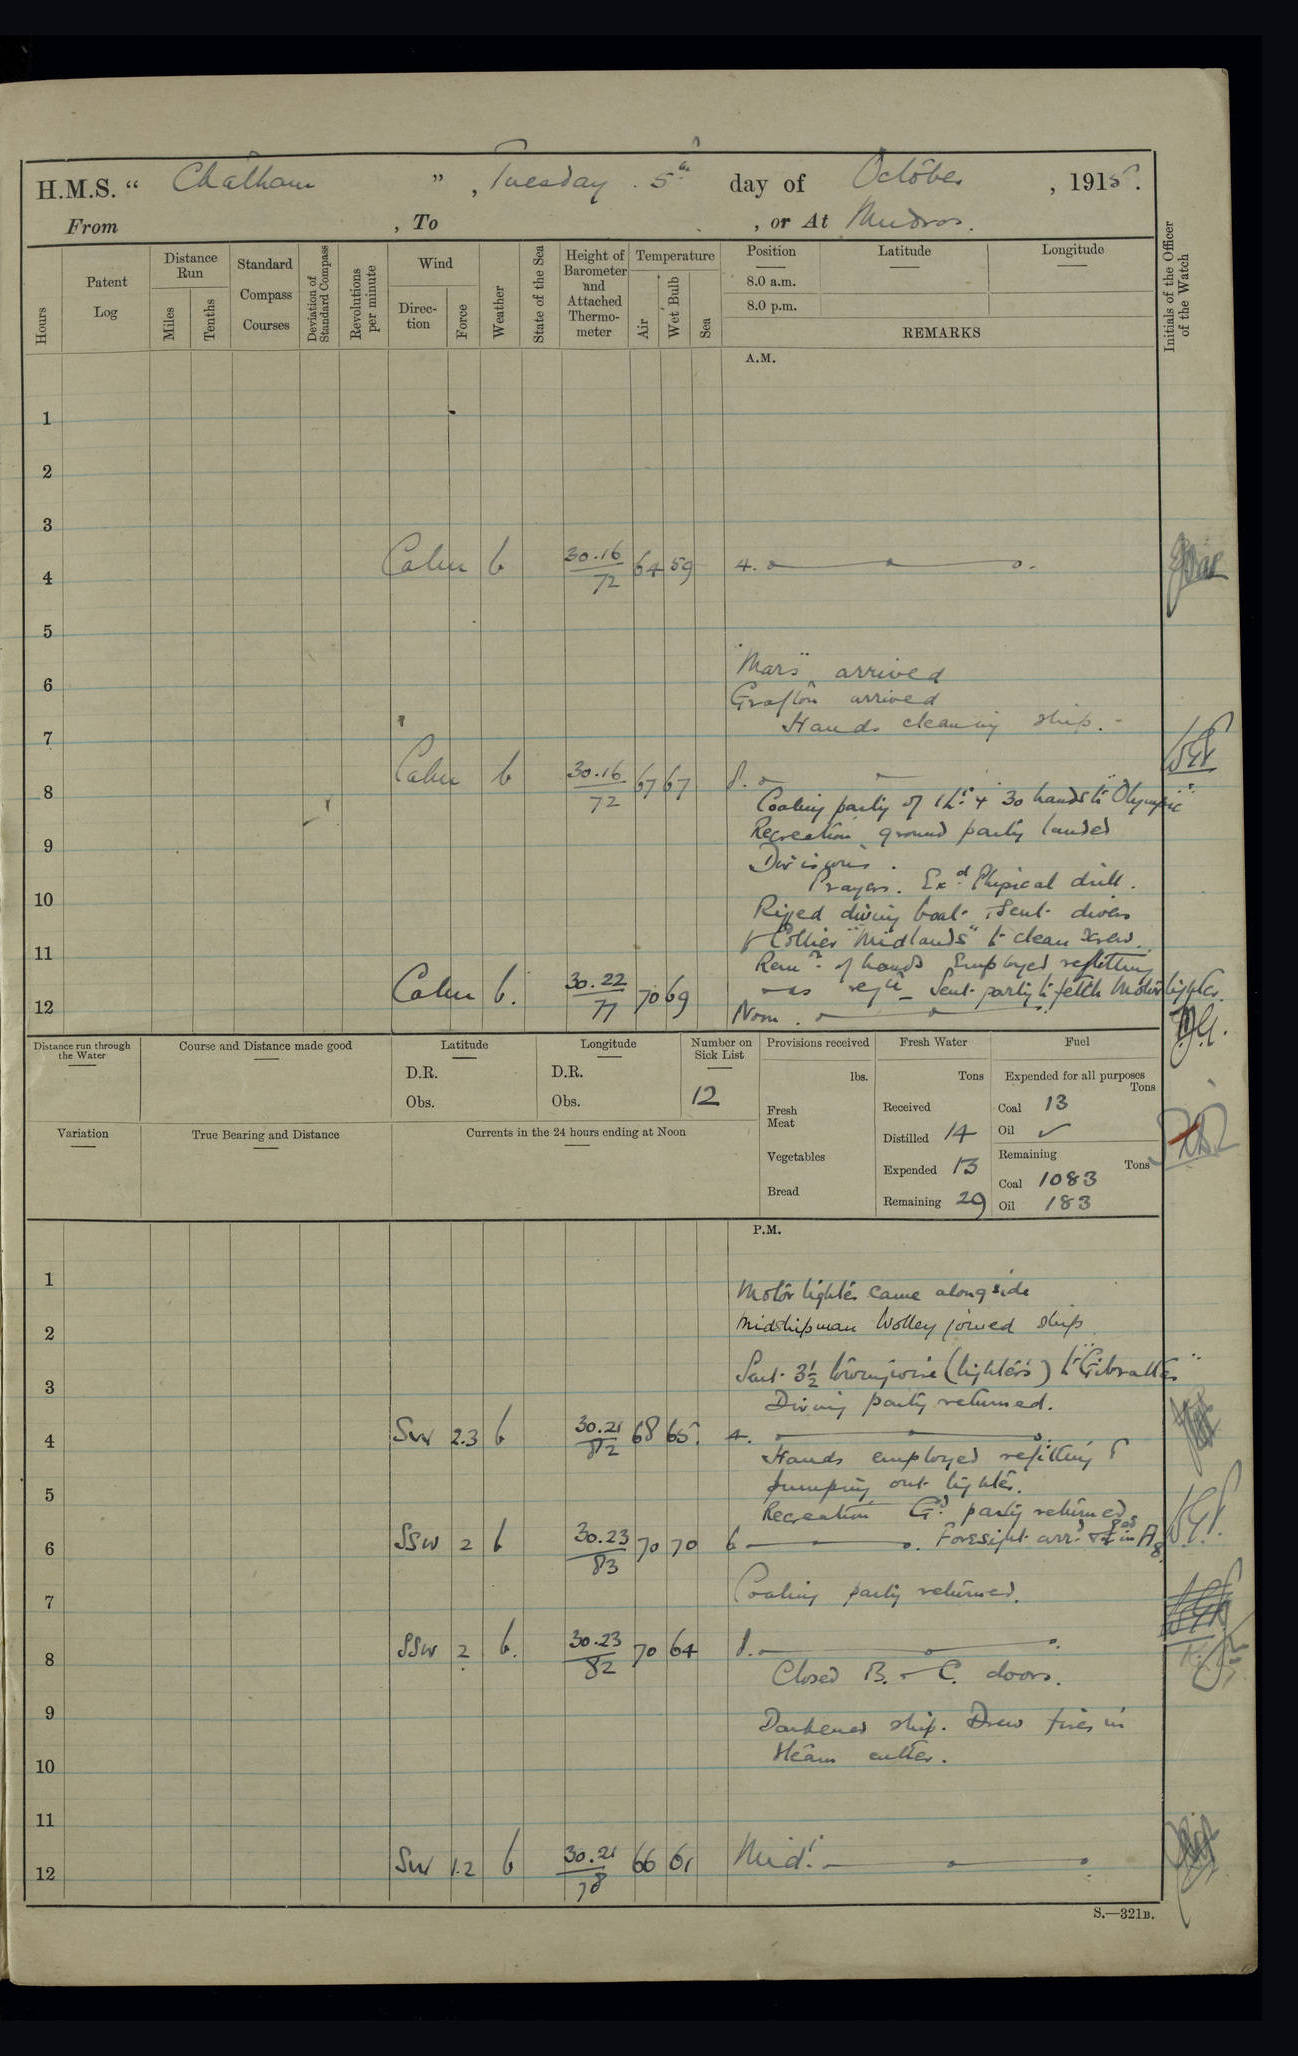 H.M.S. “ Chatham ” , Tuesday . 5th day of October , 1915.
From , To , or At Mudros.
Hours
Patent Log
Distance Run
Miles
Tenths
Standard Compass Courses
Deviation of Standard Compass
Revolutions per minute
Wind
Direction
Force
Weather
State of the Sea
Height of Barometer and Attached Thermometer
Temperature
Air
Wet Bulb
Sea
Position
Latitude
Longitude
8.0 a.m.
8.0 p.m.
REMARKS
Initials of the Officer of the Watch
A.M.
1
2
3
4 Calm b 30.16/72 64 59 4.
5
"Mars" arrived
6
Grafton arrived
Hands cleaning ship. -
7
8 Calm b 30.16/72 67 67 8.
Coaling party of 1 Lt. + 30 hands to "Olympic"
Recreation ground party landed
9
Divisions.
Prayers. Exd. Physical drill.
10
Rigged diving boat. Sent divers
to Collier "Midlands" to clean screw.
11
Remr. of hands Employed refitting
as reqte Sent party to fetch Motor lighter.
12 Calm b. 30.22/77 70 69 Noon.
Distance run through the Water
Course and Distance made good
Latitude
D.R.
Obs.
Longitude
D.R.
Obs.
Number on Sick List
12
Provisions received
lbs.
Fresh Meat
Vegetables
Bread
Fresh Water
Tons
Received
Distilled 14
Expended 13
Remaining 29
Fuel
Expended for all purposes
Tons
Coal 13
Oil ✓
Remaining
Tons
Coal 1083
Oil 183
Variation
True Bearing and Distance
Currents in the 24 hours ending at Noon
P.M.
1
Motor lighter came alongside
2
Midshipman Wolley joined ship
Sent 3½ towing wire (lighter's) to "Gibraltar"
3
Diving party returned.
4 SW 2.3 b 30.21/82 68 65. 4.
Hands employed refitting &
pumping out lighter.
5
Recreation Gd. party returned
6 SSW 2 b 30.23/83 70 70 6 Foresight arrd. in A8.
7
Coaling party returned.
8 SSW 2 b. 30.23/82 70 64 8.
Closed B. + C. doors.
9
Darkened ship. Drew fires in
steam cutter.
10
11
12 SW 1.2 b 30.21/78 66 61 Midt.
S.—321B.